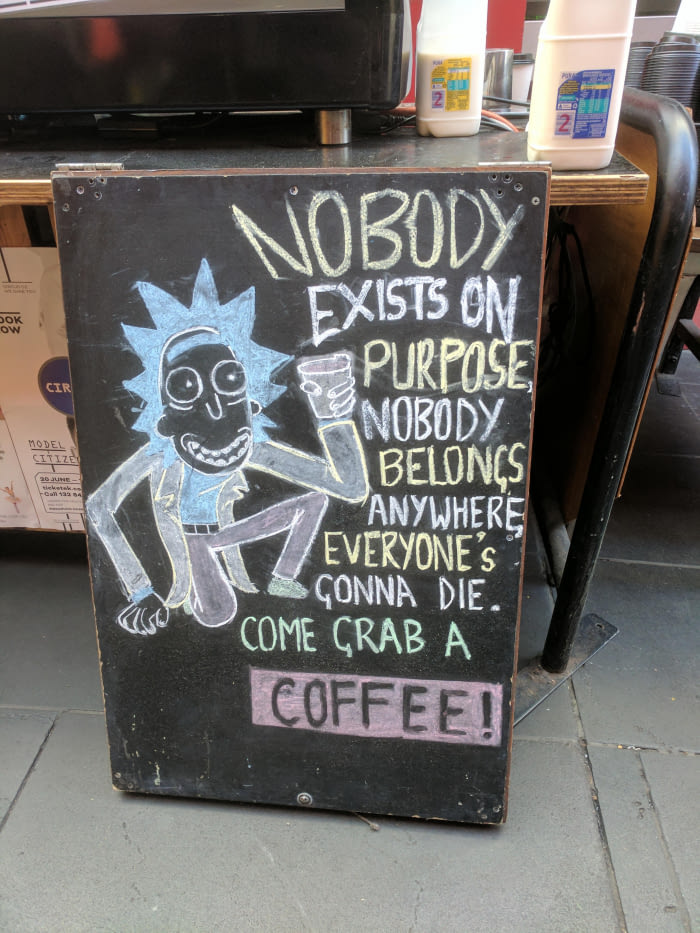 NOBODY
EXISTS ON
PURPOSE,
NOBODY
BELONGS
ANYWHERE,
EVERYONE'S
GONNA DIE.
COME GRAB A
COFFEE!
PURA
2
PURA
2
OOK
OW
CIR
MODEL
CITIZE
20 JUNE
ticketek.co
Call 132 84